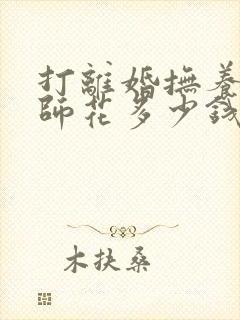 打離婚撫養
師花多少錢
木扶桑